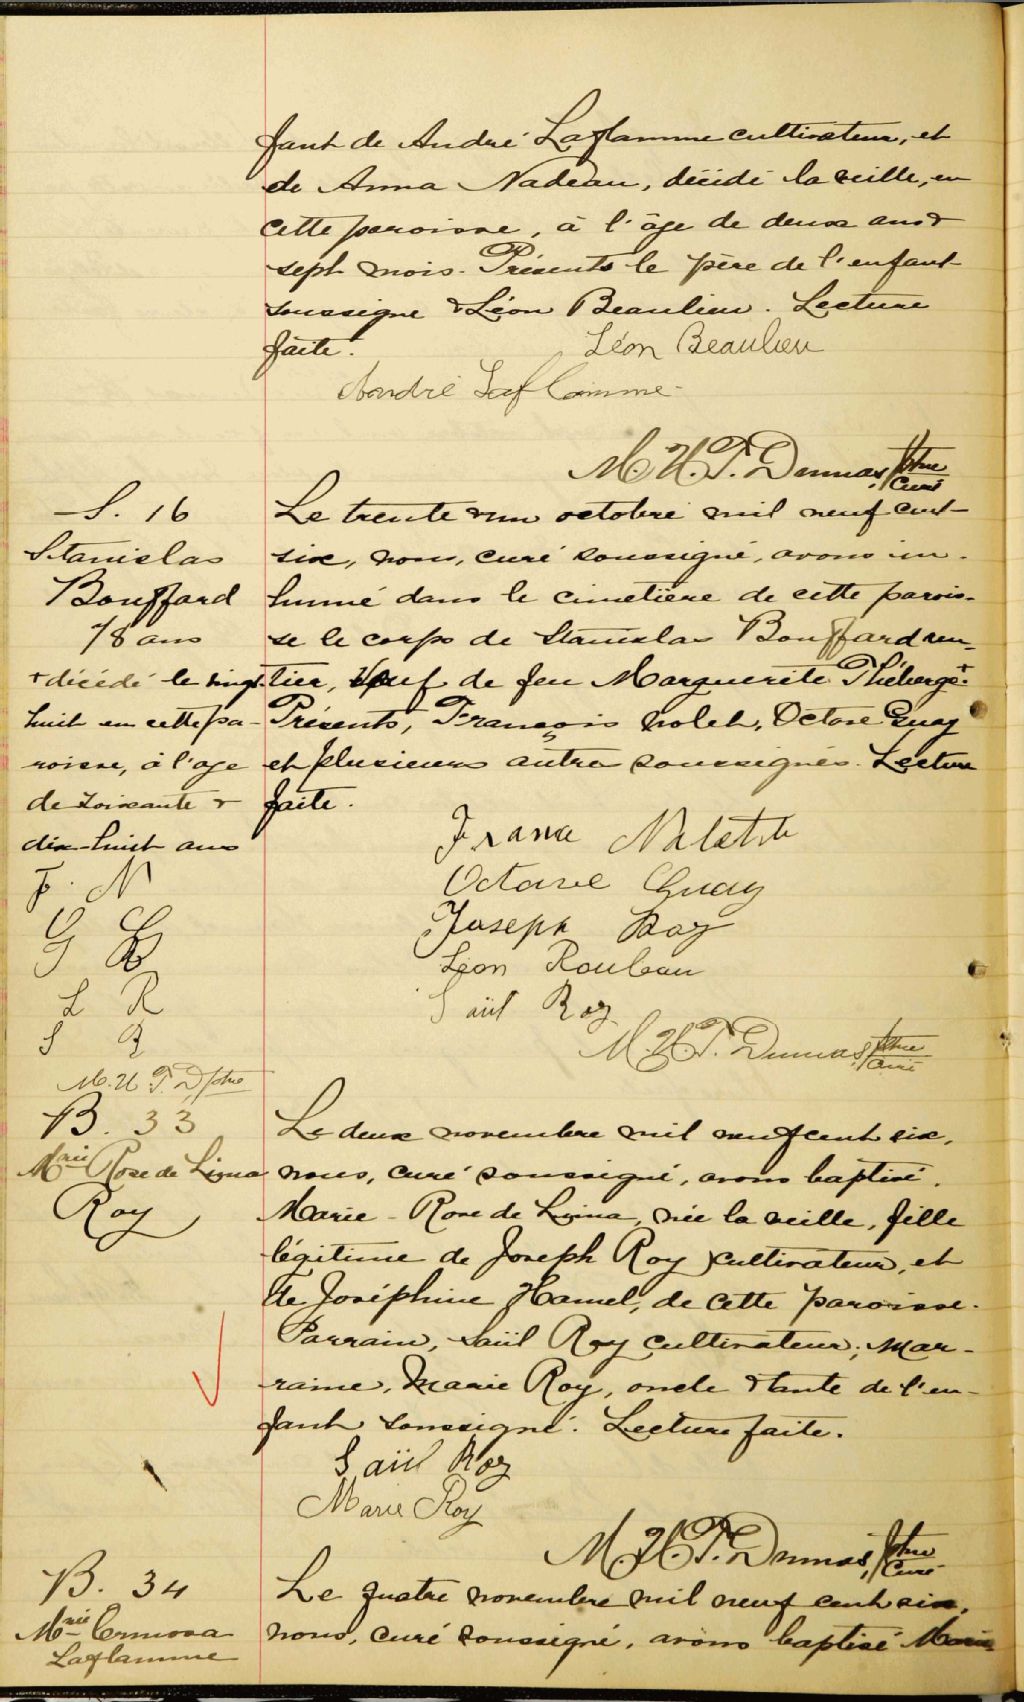 fant de André Laflamme cultivateur, et
de Anna Nadeau, décédé la veille, en
cette paroisse, à l'âge de deux ans &
sept mois. Présents le père de l'enfant
soussigné & Léon Beaulieu. Lecture
faite.
Léon Beaulieu
André Laflamme
M. H. T. Dumas, Ptre
Curé
S. 16
Stanislas
Bouffard
78 ans
+ décédé le vingt
huit en cette pa-
roisse, à l'age
de soixante &
dix-huit ans
F. N
O G
J R
L R
S R
M. H T. D ptre
Le trente & un octobre mil neuf cent
six, nous, curé soussigné, avons in-
humé dans le cimetière de cette parois-
se le corps de Stanislas Bouffard ren-
tier, veuf de feu Marguerite Théberge. +
Présents, François Nolet, Octave Guay
et plusieurs autres soussignés. Lecture
faite.
Octave Guay
Joseph Roy
Léon Rouleau
Saül Roy
M. H. T. Dumas, Ptre
Curé
B. 33
Marie Rose de Lima
Roy
Le deux novembre mil neuf cent six,
nous, curé soussigné, avons baptisé
Marie-Rose de Lima, née la veille, fille
légitime de Joseph Roy cultivateur, et
de Joséphine Hamel, de cette paroisse.
Parrain, Saül Roy cultivateur; Mar-
raine, Marie Roy, oncle & tante de l'en-
fant soussigné. Lecture faite.
Saül Roy
Marie Roy
M. H. T. Dumas, Ptre
Curé
B. 34
Marie Ermosa
Laflamme
Le quatre novembre mil neuf cent six,
nous, curé soussigné, avons baptisé Marie